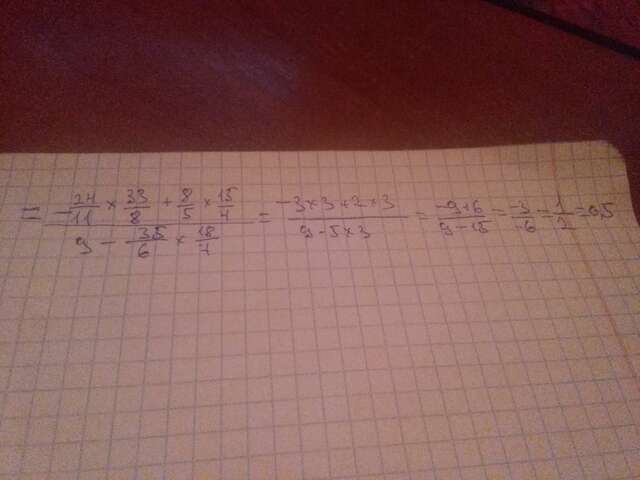 = (-24/11 × 33/8 + 8/5 × 15/4) / (9 - 35/6 × 18/7) = (-3×3+2×3) / (9-5×3) = (-9+6) / (9-15) = -3/-6 = 1/2 = 0,5